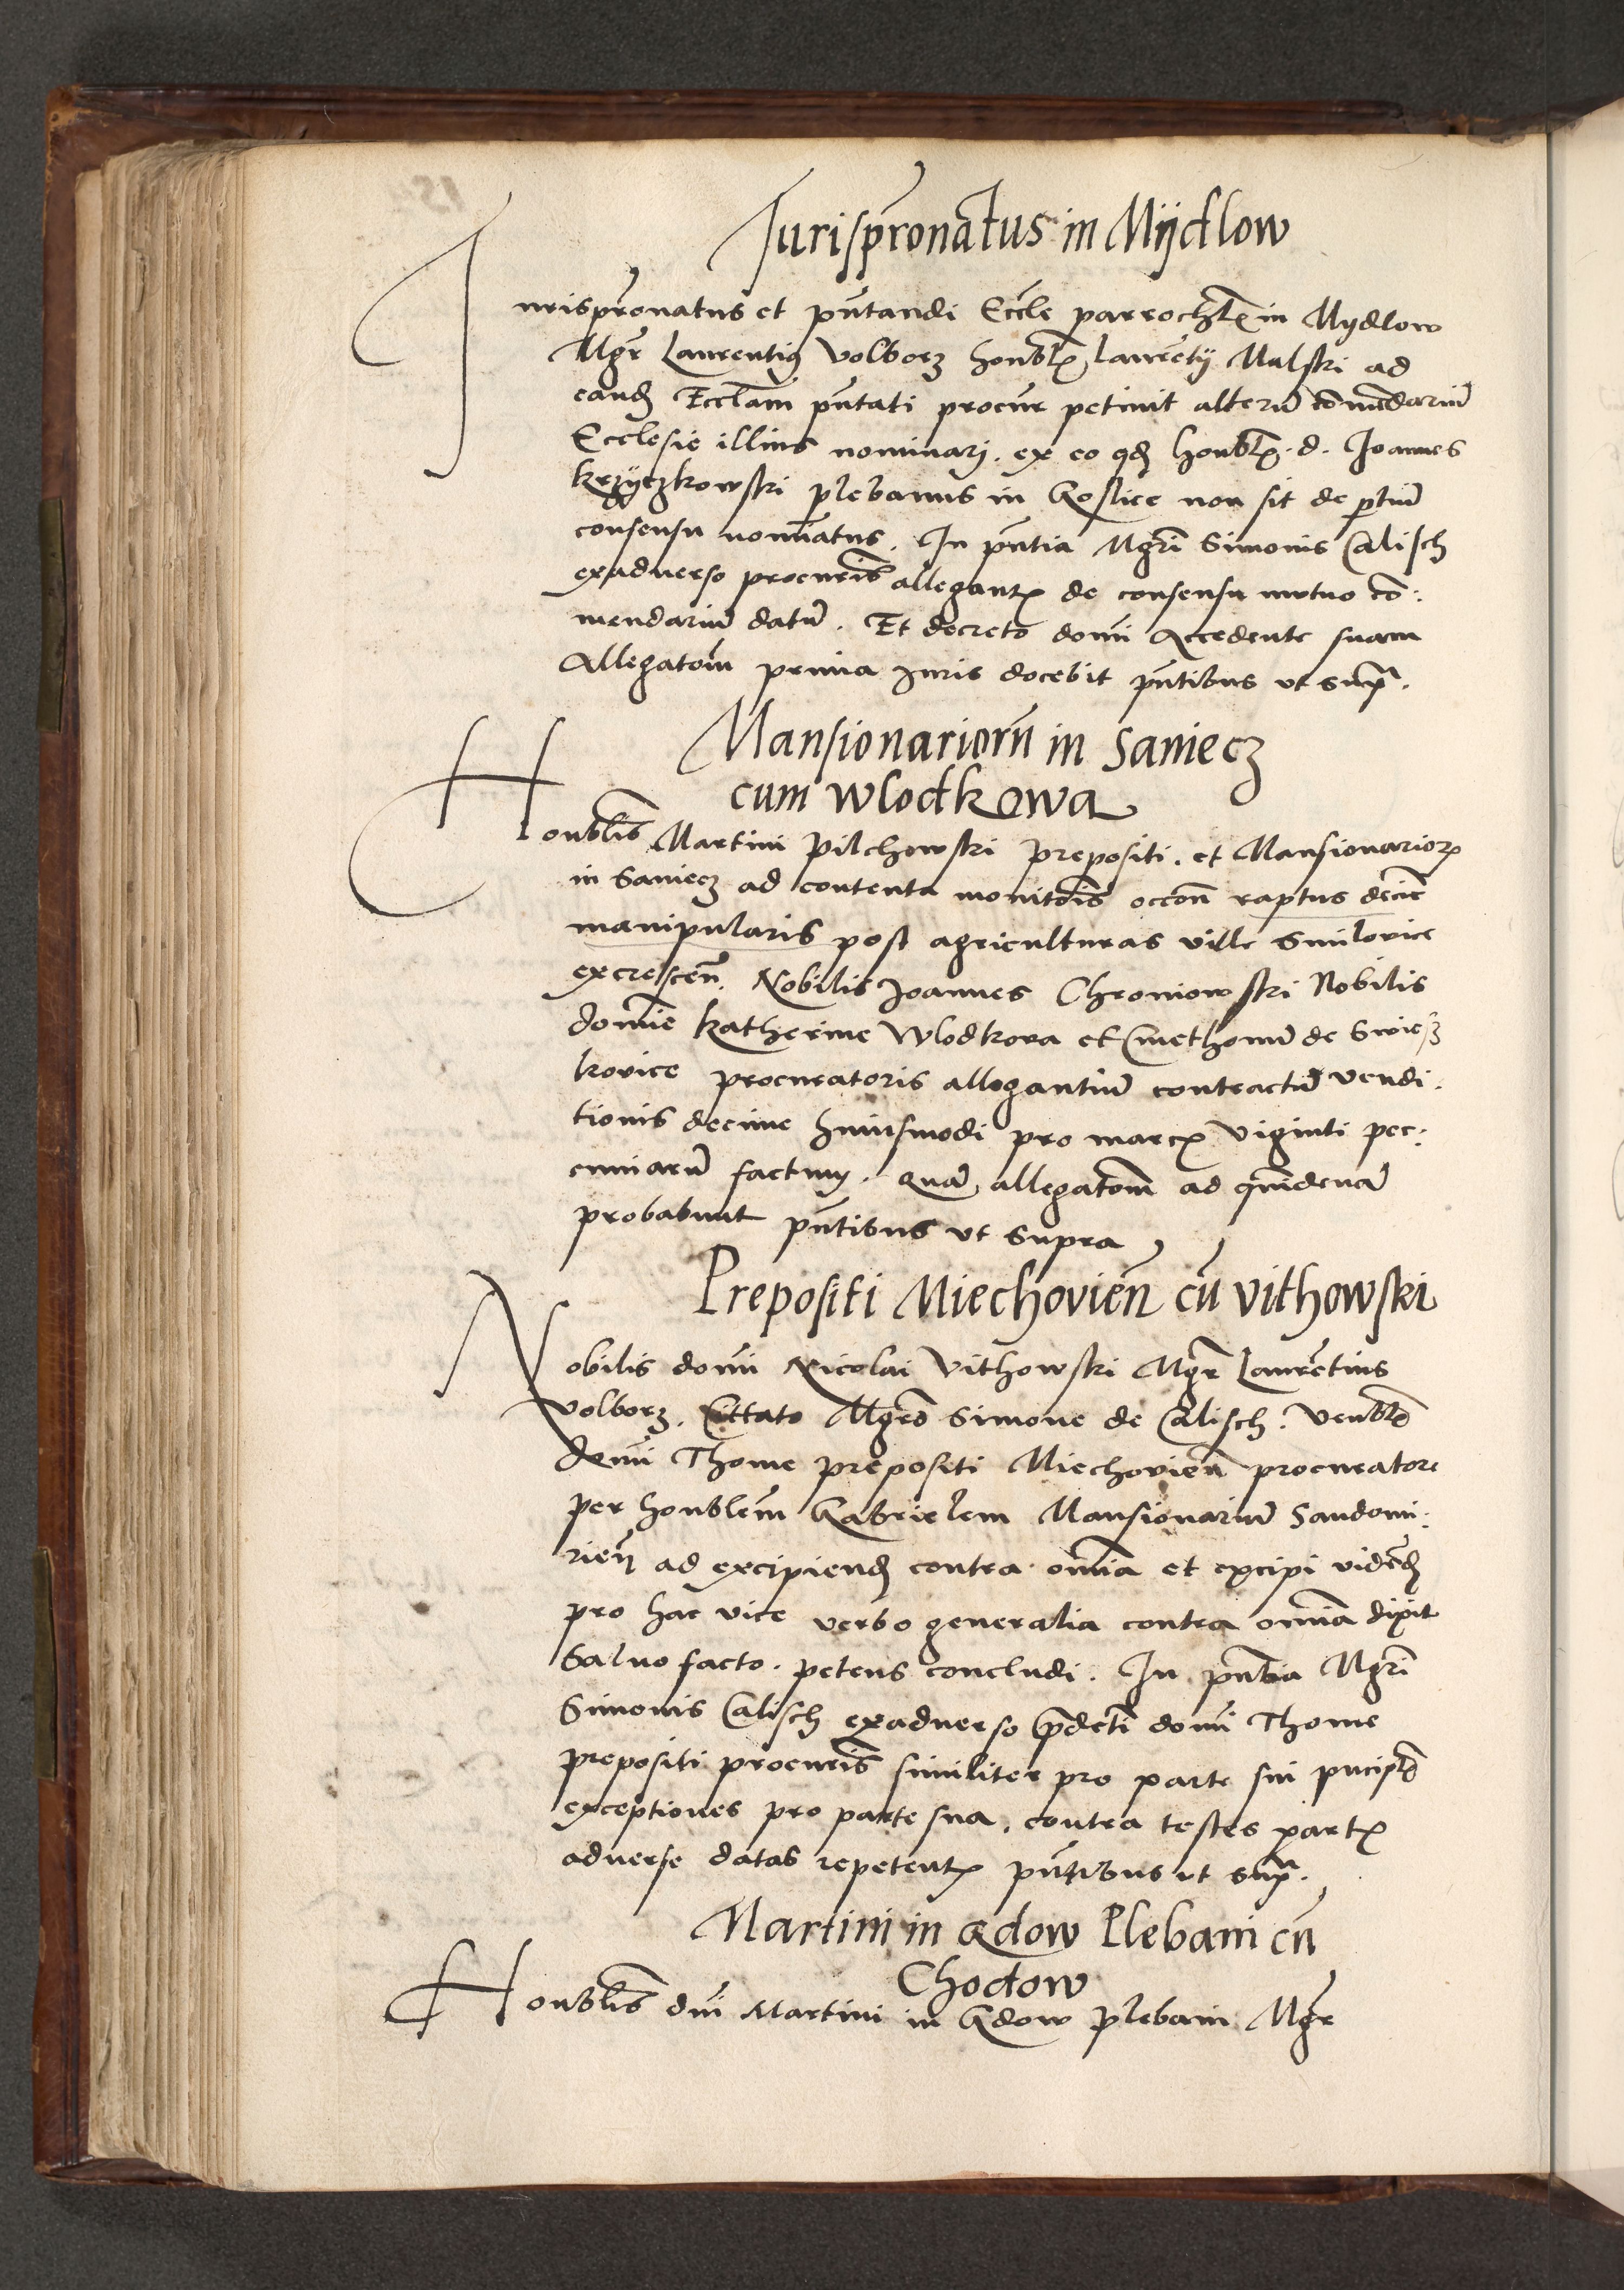 Jurisprōnatus in Mijdlow
Jurisprōnatus et pn̄tandi Eccl̄e parrochl̄ in Mydlow
Mgr̄ Laurentiꝯ Volborz honbl̄ Laurētij Malski ad
eandꝫ Eccl̄am pn̄tati procur̄ petiuit alterū cōmēdariū
Ecclesie illius nominari. ex eo qꝺ honbl̄. d. Joannes
krzyczkowski plebanus in Goslice non sit de ꝑtiū
consensu noīatus. In pn̄tia Mgr̄i Simonis Calisch
exaduerso procur̄is allegantꝭ de consensu mutuo cō:
mendariū datū. Et decreto domī accedente suam
Allegatōm̄ prima Juris docebit pn̄tibus ut supᵃ.
Mansionariorū in Saniecz
cum wlodkowa
Honbl̄is Martini Pilchowski prepositi. et Mansionariorꝫ
in Saniecz ad contenta monitōis occōn̄ raptus decīe
manipularis post agriculturas ville Smilovice
excrescen̄. Nobilis Joannes Chroniowski Nobilis
domīe Katherine Wlodkova et Cmethonū de Swiesz
kovice procuratoris allegantiū contractū vendi.
tionis decime huiusmodi pro marcꝭ viginti pec:
cuniarū factum. Quā allegatōm̄ ad quīdenā
probabunt pn̄tibus ut supra
Prepositi Miechovien̄ cū vithowski
Nobilis domī Nicolai Vithowski Mgr̄ Laurētius
volborz. Cittato Mgr̄o Simone de Calisch. Venbl̄
domī Thome prepositi Miechovien̄ procuratore
per honblēm Gabrielem Mansionariū Sandomi:
rien̄ ad excipiendꝫ contra omīa et excipi vidēdꝫ
pro hac vice verbo generalia contra omīa dixit
Saluo facto. petens concludi. In pn̄tia Mgr̄i
Simonis Calisch exaduerso p̄dcti domī Thome
prepositi procur̄is similiter pro parte sui pn̄cipl̄
exceptiones pro parte sua. contra testes partꝭ
aduerse datas repetentꝭ pn̄tibus ut supᵃ.
Martini in Gdow Plebani cū
Chodow
Honbl̄is dnī Martini in Gdow plebani Mgr̄